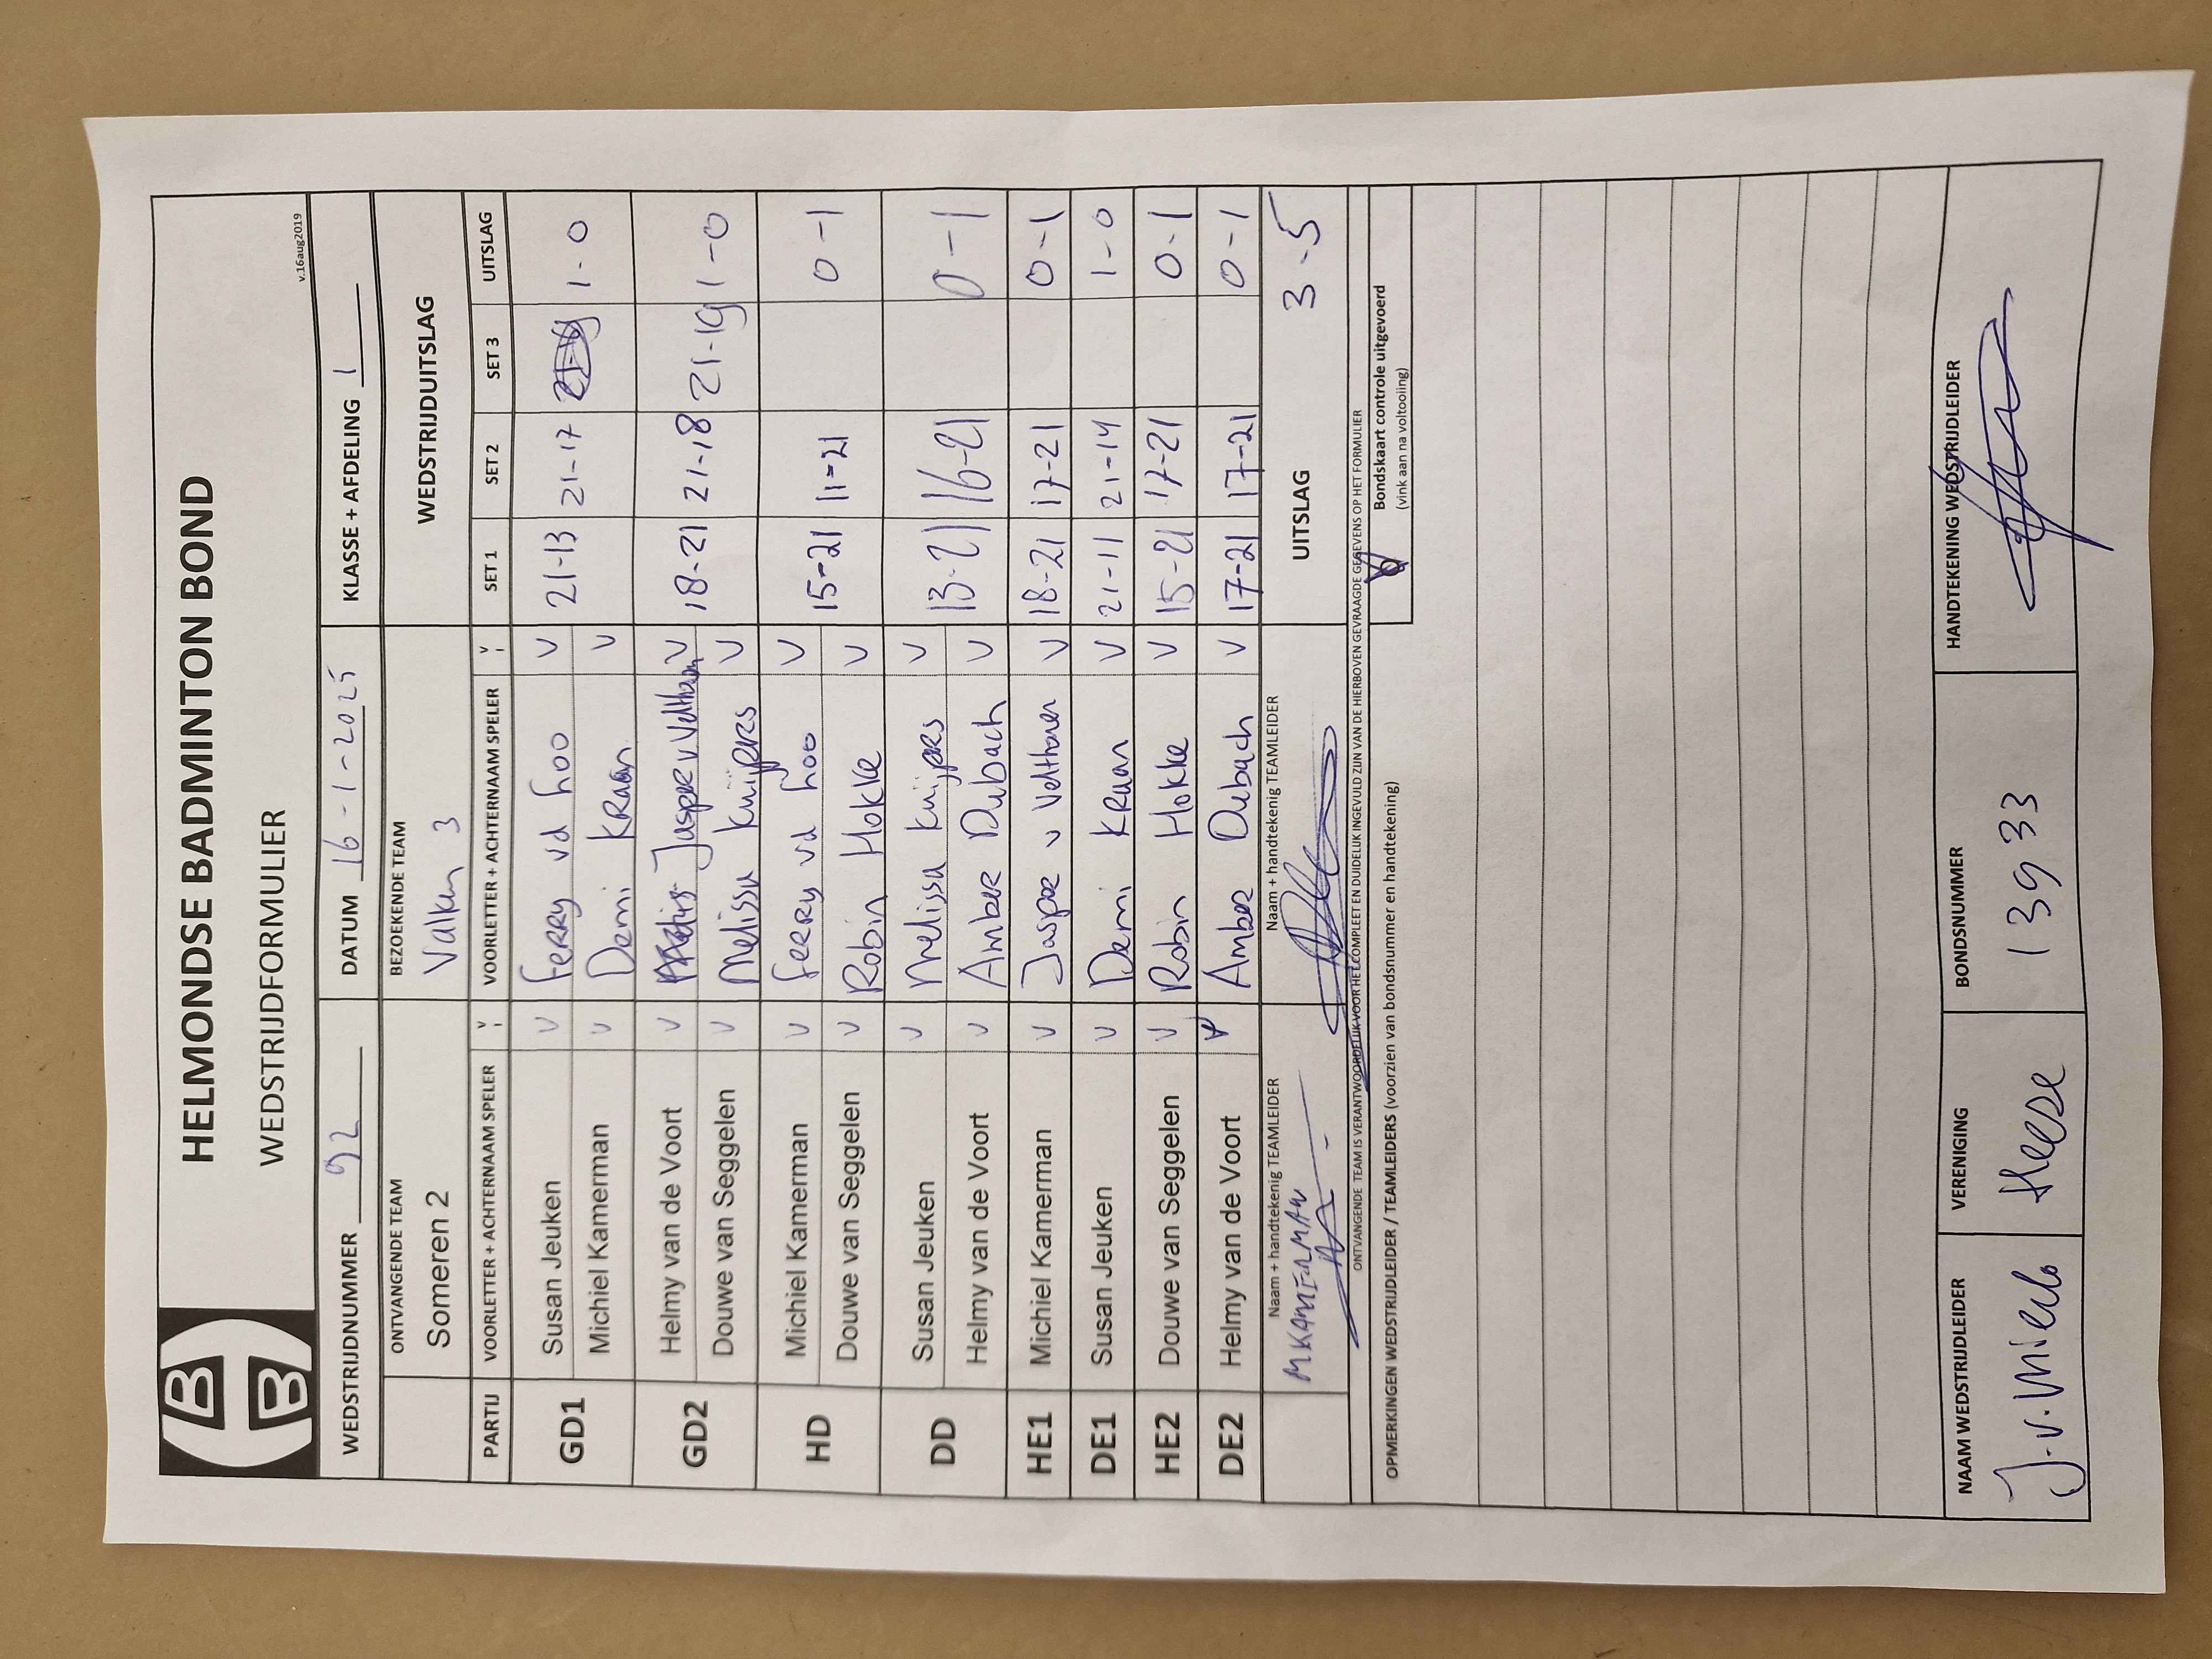 HELMONDSE BADMINTON BOND
WEDSTRIJDFORMULIER
v.16aug2019
WEDSTRIJDNUMMER 92 DATUM 16-1-2025 KLASSE + AFDELING 1
ONTVANGENDE TEAM BEZOEKENDE TEAM WEDSTRIJDUITSLAG
Someren 2 Valken 3
PARTIJ VOORLETTER + ACHTERNAAM SPELER V VOORLETTER + ACHTERNAAM SPELER V SET 1 SET 2 SET 3 UITSLAG
GD1 Susan Jeuken V Ferry vd Loo V 21-13 21-17 1-0
Michiel Kamerman V Demi Kraan V
GD2 Helmy van de Voort V Jasper v Velthoven V 18-21 21-18 21-19 1-0
Douwe van Seggelen V Melissa Kuijpers V
HD Michiel Kamerman V Ferry vd Loo V 15-21 11-21 0-1
Douwe van Seggelen V Robin Hokke V
DD Susan Jeuken V Melissa Kuijpers V 13-21 16-21 0-1
Helmy van de Voort V Amber Dubach V
HE1 Michiel Kamerman V Jasper v Velthoven V 18-21 17-21 0-1
DE1 Susan Jeuken V Demi Kraan V 21-11 21-14 1-0
HE2 Douwe van Seggelen V Robin Hokke V 15-21 17-21 0-1
DE2 Helmy van de Voort V Amber Dubach V 17-21 17-21 0-1
Naam + handtekenig TEAMLEIDER Naam + handtekenig TEAMLEIDER UITSLAG 3-5
M KAMERMAN
ONTVANGENDE TEAM IS VERANTWOORDELIJK VOOR HET COMPLEET EN DUIDELIJK INGEVULD ZIJN VAN DE HIERBOVEN GEVRAAGDE GEGEVENS OP HET FORMULIER
OPMERKINGEN WEDSTRIJDLEIDER / TEAMLEIDERS (voorzien van bondsnummer en handtekening) V Bondskaart controle uitgevoerd
(vink aan na voltooiing)
NAAM WEDSTRIJDLEIDER VERENIGING BONDSNUMMER HANDTEKENING WEDSTRIJDLEIDER
J.v. Mierlo Heeze 13933